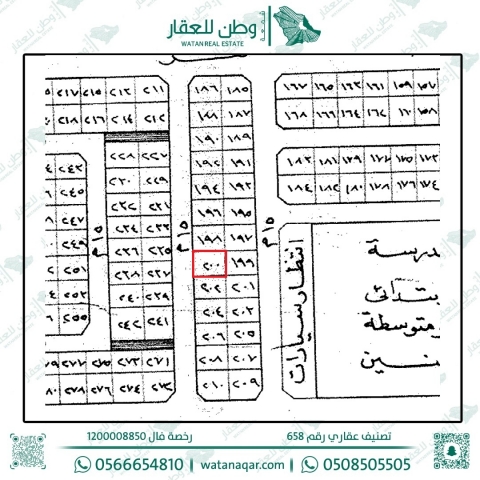 وطن للعقار
WATAN REAL ESTATE
١٨٦ ١٨٥
١٨٨ ١٨٧
١٩٠ ١٨٩
١٩٢ ١٩١
١٩٤ ١٩٣
١٩٦ ١٩٥
١٩٨ ١٩٧
٢٠٠ ١٩٩
٢٠٢ ٢٠١
٢٠٤ ٢٠٣
٢٠٦ ٢٠٥
٢٠٨ ٢٠٧
٢١٠ ٢٠٩
٢١٧ ٢١٥ ٢١٣ ٢١١
٢١٨ ٢١٦ ٢١٤ ٢١٢
٢٢٨ ٢٢٧
٢٣٠ ٢٢٩
٢٣٢ ٢٣١
٢٣٤ ٢٣٣
٢٣٦ ٢٣٥
٢٣٨ ٢٣٧
٢٤٠ ٢٣٩
٢٤٢ ٢٤١
٢٧٧ ٢٧٥ ٢٧٣ ٢٧١
٢٧٨ ٢٧٦ ٢٧٤ ٢٧٢
١٦٧ ١٦٥ ١٦٣ ١٦١ ١٥٩ ١٥٧
١٦٨ ١٦٦ ١٦٤ ١٦٢ ١٦٠ ١٥٨
١٨٣ ١٨١ ١٧٩ ١٧٧ ١٧٥ ١٧٣
١٨٤ ١٨٢ ١٨٠ ١٧٨ ١٧٦ ١٧٤
١٥م
١٥م
١٥م
انتظار سيارات
درسة
بتدائي
متوسطة
نين
رخصة فال 1200008850
تصنيف عقاري رقم 658
0566654810 | watanaqar.com | 0508505505